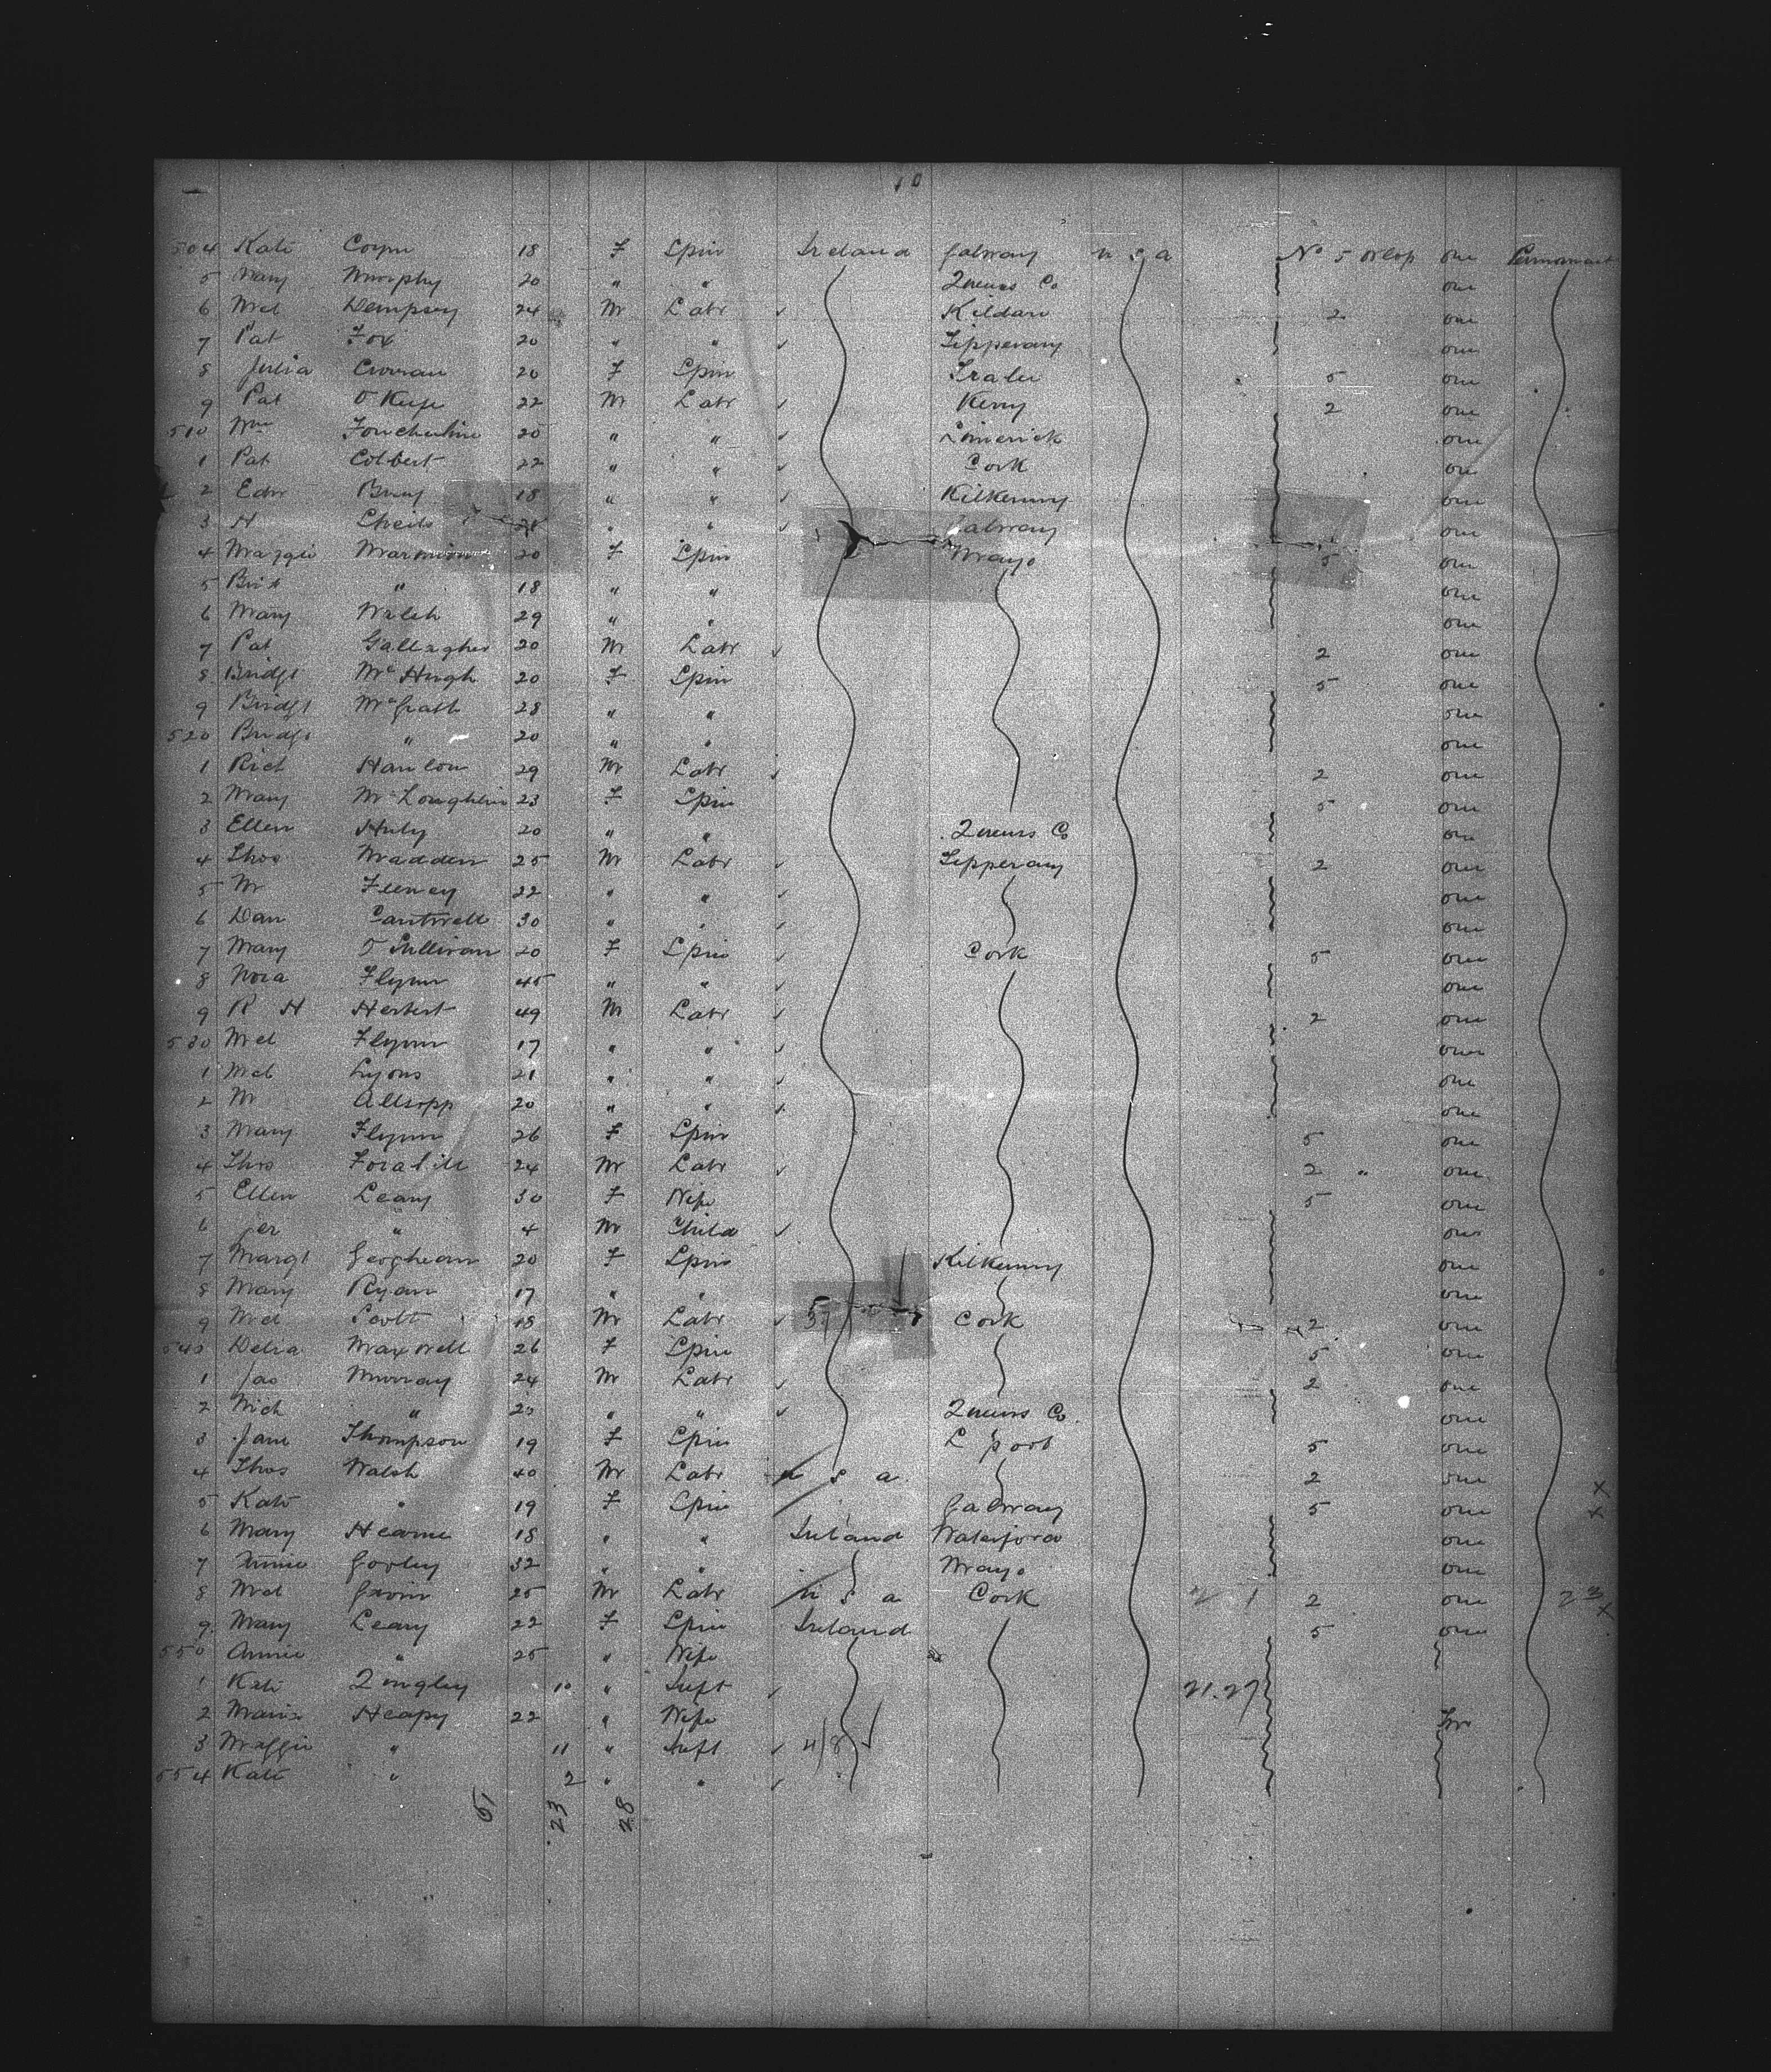 10
504 Kate Coyne 18 F Spin Ireland Galway U S A No 5 orlop one Permanent
5 Mary Murphy 20 " " Queens Co one
6 Mcl Dempsey 24 M Labr ✓ Kildare 2 one
7 Pat Fox 20 " " ✓ Tipperary one
8 Julia Curran 20 F Spin Tralee 5 one
9 Pat O Keefe 22 M Labr ✓ Kerry 2 one
510 Wm 20 " " ✓ Limerick one
1 Pat Colbert 22 " " ✓ Cork one
2 Edw 18 " " ✓ Kilkenny one
3 H Sheils " " ✓ Galway one
4 Maggie 20 F Spin Mayo 5 one
5 " 18 " " one
6 Mary Walsh 29 " " one
7 Pat Gallagher 20 M Labr ✓ 2 one
8 Bridgt McHugh 20 F Spin 5 one
9 Bridgt McGrath 28 " " one
520 Bridgt " 20 " " one
1 Rich Hanlon 29 M Labr ✓ 2 one
2 Mary McLoughlin 23 F Spin 5 one
3 Ellen 20 " " Queens Co one
4 Thos Madden 25 M Labr ✓ Tipperary 2 one
5 M 22 " " ✓ one
6 Dan Cantwell 30 " " ✓ one
7 Mary O Sullivan 20 F Spin ✓ Cork 5 one
8 Nora Flynn 45 " " ✓ one
9 R H Herbert 49 M Labr ✓ 2 one
530 Mcl Flynn 17 " " ✓ one
1 Mcl Lyons 21 " " ✓ one
2 M Allsopp 20 " " ✓ one
3 Mary Flynn 26 F Spin 5 one
4 Thos 24 M Labr ✓ 2 " one
5 Ellen Leary 30 F Wife 5 one
6 Jer " 4 M Child ✓ one
7 Margt Geoghean 20 F Spin Kilkenny one
8 Mary Ryan 17 " " one
9 Mcl Scott 18 M Labr ✓ Cork 2 one
540 Delia Maxwell 26 F Spin 5 one
1 Jas Murray 24 M Labr ✓ 2 one
2 Mich " " " ✓ Queens Co one
3 Jane Thompson 19 F Spin L'pool 5 one
4 Thos Walsh 40 M Labr U S A 2 one X
5 Kate " 19 F Spin Galway 5 one X
6 Mary Hearne 18 " " Ireland Waterford one
7 Annie 32 " " Mayo one
8 Mcl Gavin 25 M Labr U S A Cork 2 one X
9 Mary Leary 22 F Spin Ireland 5 one
550 Annie " 25 " Wife
1 Kate Quigley 10 " Inft ✓ 21.27
2 Maria Heapy 22 " Wife
3 Maggie " 11 " Inft ✓ 4/8 ✓
554 Kate " 2 " " ✓
51 23 28